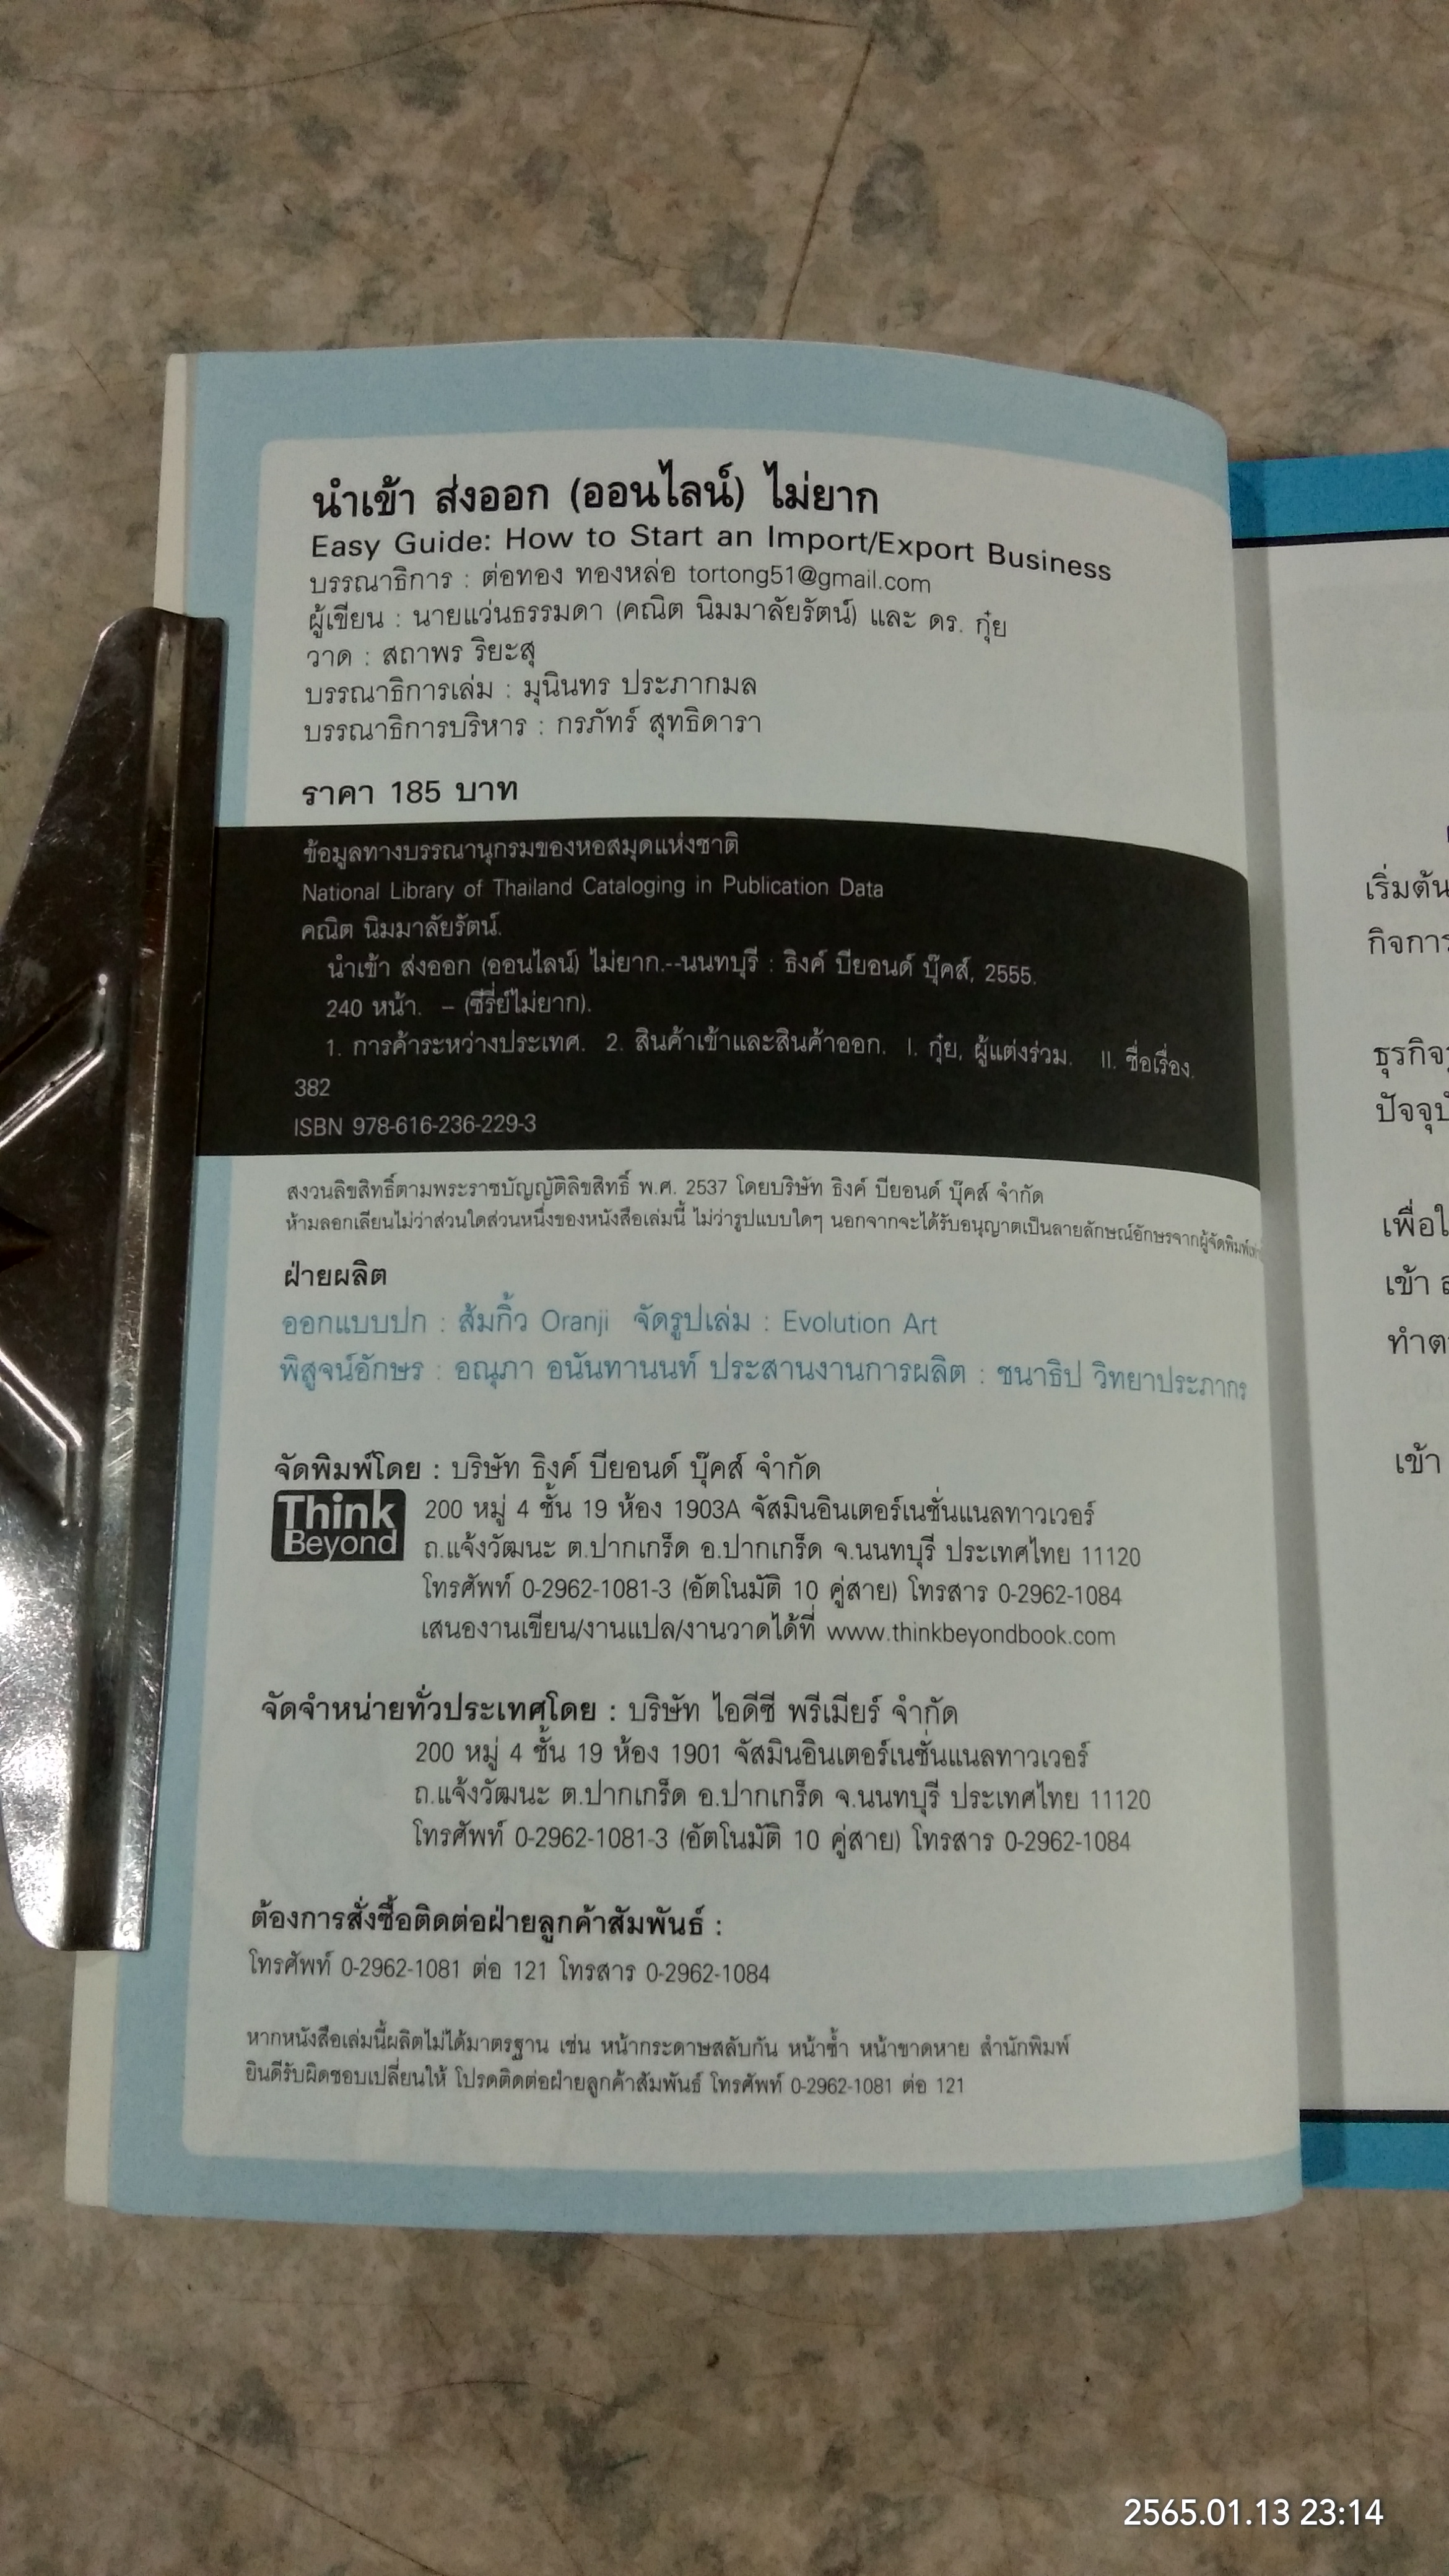 นำเข้า ส่งออก (ออนไลน์) ไม่ยาก
Easy Guide: How to Start an Import/Export Business
บรรณาธิการ : ต่อทอง ทองหล่อ tortong51@gmail.com
ผู้เขียน : นายแว่นธรรมดา (คณิต นิมมาลัยรัตน์) และ ดร. กุ๋ย
วาด : สถาพร ริยะสุ
บรรณาธิการเล่ม : มุนินทร ประภากมล
บรรณาธิการบริหาร : กรภัทร์ สุทธิดารา
ราคา 185 บาท
ข้อมูลทางบรรณานุกรมของหอสมุดแห่งชาติ
National Library of Thailand Cataloging in Publication Data
คณิต นิมมาลัยรัตน์.
นำเข้า ส่งออก (ออนไลน์) ไม่ยาก.--นนทบุรี : ธิงค์ บียอนด์ บุ๊คส์, 2555.
240 หน้า. – (ซีรี่ย์ไม่ยาก).
1. การค้าระหว่างประเทศ. 2. สินค้าเข้าและสินค้าออก. I. กุ๋ย, ผู้แต่งร่วม. II. ชื่อเรื่อง.
382
ISBN 978-616-236-229-3
สงวนลิขสิทธิ์ตามพระราชบัญญัติลิขสิทธิ์ พ.ศ. 2537 โดยบริษัท ธิงค์ บียอนด์ บุ๊คส์ จำกัด
ห้ามลอกเลียนไม่ว่าส่วนใดส่วนหนึ่งของหนังสือเล่มนี้ ไม่ว่ารูปแบบใดๆ นอกจากจะได้รับอนุญาตเป็นลายลักษณ์อักษรจากผู้จัดพิมพ์
ฝ่ายผลิต
ออกแบบปก : ส้มกิ้ว Oranji จัดรูปเล่ม : Evolution Art
พิสูจน์อักษร : อณุภา อนันทานนท์ ประสานงานการผลิต : ชนาธิป วิทยาประภากร
จัดพิมพ์โดย : บริษัท ธิงค์ บียอนด์ บุ๊คส์ จำกัด
Think
Beyond
200 หมู่ 4 ชั้น 19 ห้อง 1903A จัสมินอินเตอร์เนชั่นแนลทาวเวอร์
ถ.แจ้งวัฒนะ ต.ปากเกร็ด อ.ปากเกร็ด จ.นนทบุรี ประเทศไทย 11120
โทรศัพท์ 0-2962-1081-3 (อัตโนมัติ 10 คู่สาย) โทรสาร 0-2962-1084
เสนองานเขียน/งานแปล/งานวาดได้ที่ www.thinkbeyondbook.com
จัดจำหน่ายทั่วประเทศโดย : บริษัท ไอดีซี พรีเมียร์ จำกัด
200 หมู่ 4 ชั้น 19 ห้อง 1901 จัสมินอินเตอร์เนชั่นแนลทาวเวอร์
ถ.แจ้งวัฒนะ ต.ปากเกร็ด อ.ปากเกร็ด จ.นนทบุรี ประเทศไทย 11120
โทรศัพท์ 0-2962-1081-3 (อัตโนมัติ 10 คู่สาย) โทรสาร 0-2962-1084
ต้องการสั่งซื้อติดต่อฝ่ายลูกค้าสัมพันธ์ :
โทรศัพท์ 0-2962-1081 ต่อ 121 โทรสาร 0-2962-1084
หากหนังสือเล่มนี้ผลิตไม่ได้มาตรฐาน เช่น หน้ากระดาษสลับกัน หน้าซ้ำ หน้าขาดหาย สำนักพิมพ์
ยินดีรับผิดชอบเปลี่ยนให้ โปรดติดต่อฝ่ายลูกค้าสัมพันธ์ โทรศัพท์ 0-2962-1081 ต่อ 121
เริ่มต้น
กิจการ
ธุรกิจ
เข้า
เข้า
2565.01.13 23:14